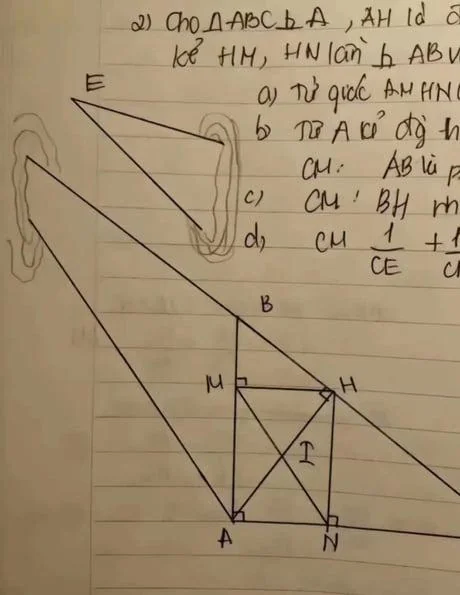 2) Cho ΔABC ⊥ A, AH là
kẻ HM, HN lần ⊥ AB
a) Tứ giác AMHN
b) Từ A kẻ đg
CM: AB là p
c) CM: BH
d) CM 1/CE + 1/
E
B
M
H
I
A
N